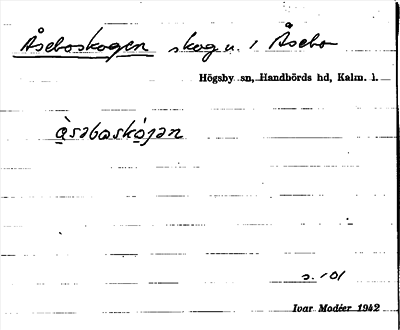 Åseboskogen skog u. / Åsebo
Högsby sn, Handbörds hd, Kalm. l.
å̀səboskójən
s. 101
Ivar Modéer 1942